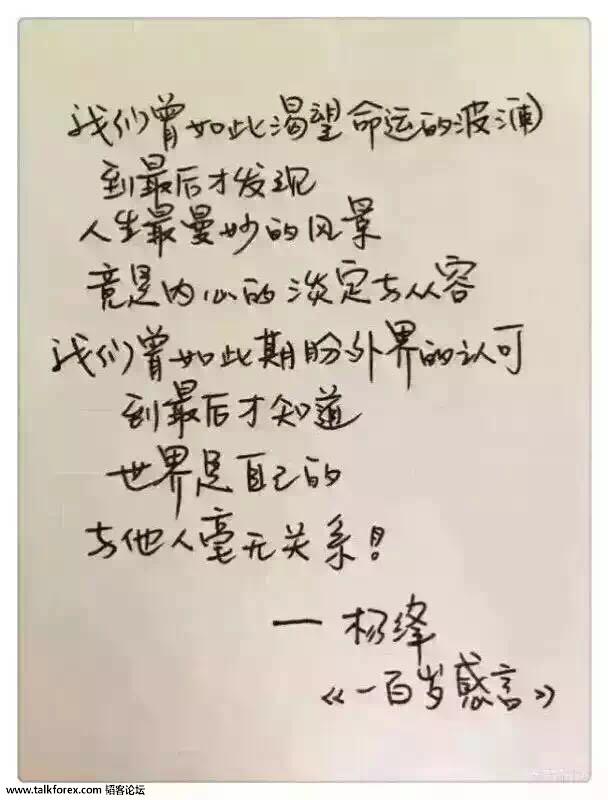 我们曾如此渴望命运的波澜
到最后才发现
人生最曼妙的风景
竟是内心的淡定与从容
我们曾如此期盼外界的认可
到最后才知道
世界是自己的
与他人毫无关系！
— 杨绛
《一百岁感言》
www.talkforex.com 韬客论坛